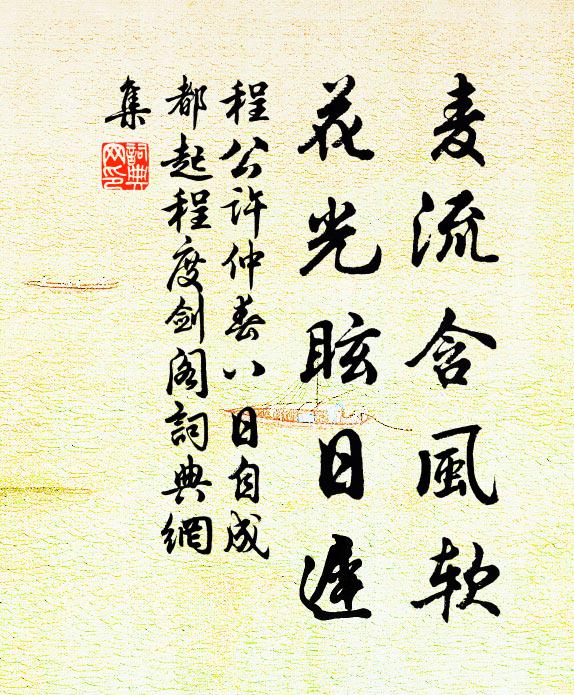 麦流含風軟
花光眩日遲
程公許仲春八日自成
都起程度劍阁詞典網
集
詞典
网印